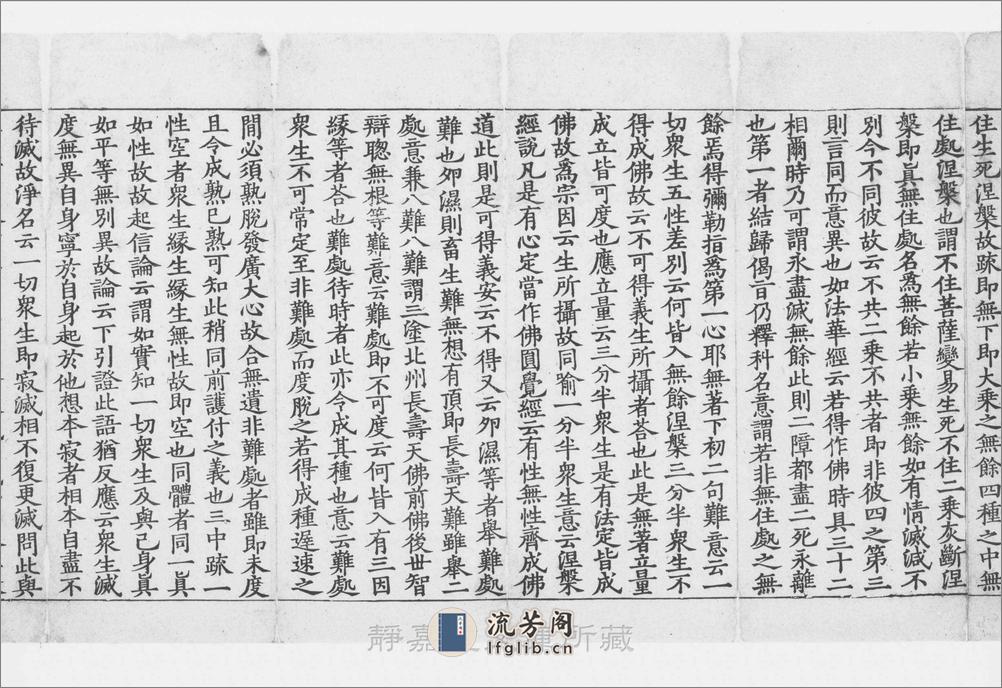 住生死涅槃故疎即無下即大乘之無餘四種之中無
住處涅槃也謂不住菩薩變易生死不住二乘灰斷涅
槃即眞無住處名爲無餘若小乘無餘如有情滅滅不
別今不同彼故云不共二乘不共者即非彼四之第三
則言同而意異也如法華經云若得作佛時具三十二
相爾時乃可謂永盡滅無餘此則二障都盡二死永離
也第一者結歸偈旨仍釋科名意謂若非無住處之無
餘焉得彌勒指爲第一心耶無著下初二句難意云一
切衆生五性差別云何皆入無餘涅槃三分半衆生不
得成佛故云不可得義生所攝者荅也此是無著立量
成立皆可度也應立量云三分半衆生是有法定皆成
佛故爲宗因云生所攝故同喻一分半衆生意云涅槃
經說凡是有心定當作佛圓覺經云有性無性齊成佛
道此則是可得義安云不得又云夘濕等者舉難處
難也夘濕則畜生難無想有頂即長壽天難雖舉二
處意兼八難八難謂三塗北州長壽天佛前佛後世智
辯聰無根等難意云難處即不可度云何皆入有三因
緣等者荅也難處待時者此亦令成其種也意云難處
衆生不可常定至非難處而度脫之若得成種遲速之
間必須熟脫發廣大心故合無遺非難處者雖即未度
且令成熟已熟可知此稍同前護付之義也三中疎一
性空者衆生緣生緣生無性故即空也同體者同一眞
如性故故起信論云謂如實知一切衆生及與己身眞
如平等無別異故論云下引證此語猶反應云衆生滅
度無異自身寧於自身起於他想本寂者相本自盡不
待滅故淨名云一切衆生即寂滅相不復更滅問此與
靜嘉堂文庫所藏
流芳阁
lfglib.cn